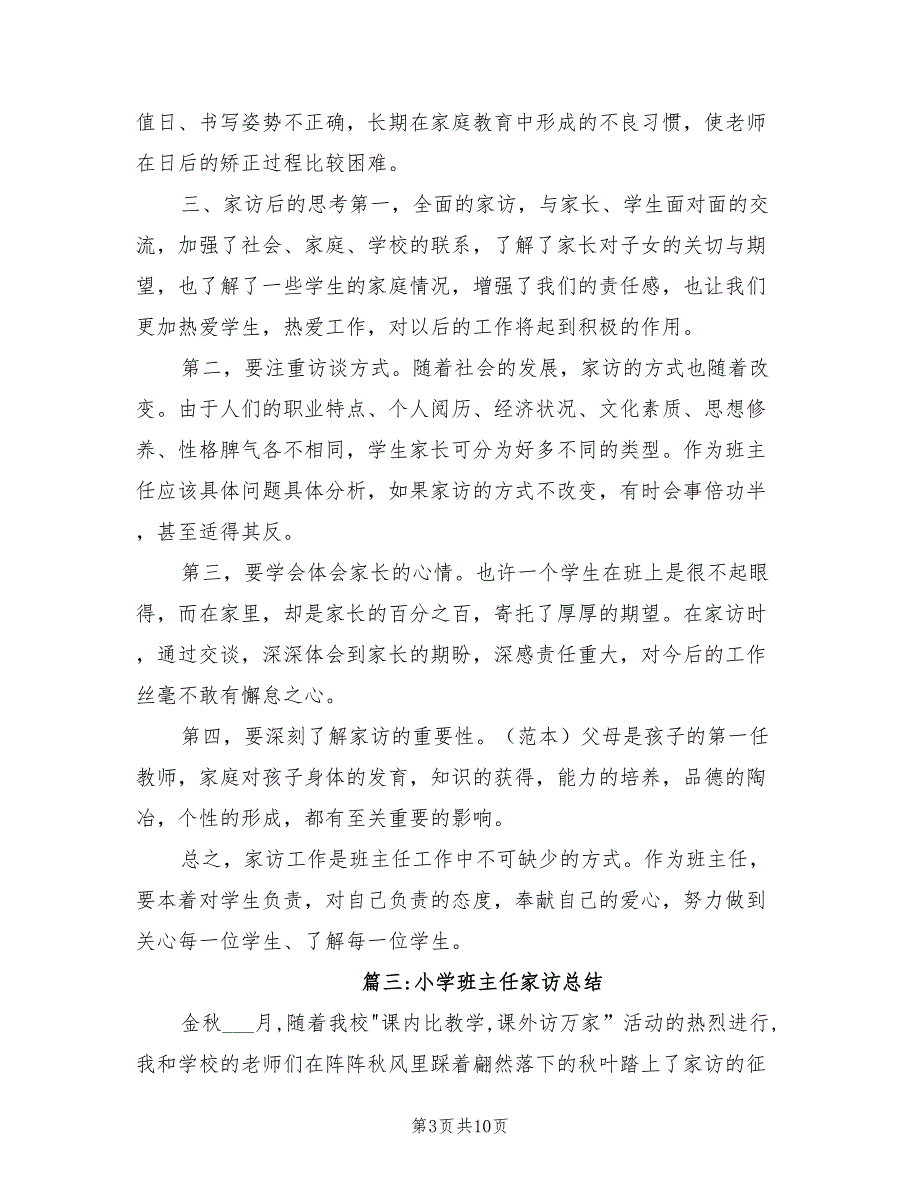 值日、书写姿势不正确，长期在家庭教育中形成的不良习惯，使老师
在日后的矫正过程比较困难。
三、家访后的思考第一，全面的家访，与家长、学生面对面的交
流，加强了社会、家庭、学校的联系，了解了家长对子女的关切与期
望，也了解了一些学生的家庭情况，增强了我们的责任感，也让我们
更加热爱学生，热爱工作，对以后的工作将起到积极的作用。
第二，要注重访谈方式。随着社会的发展，家访的方式也随着改
变。由于人们的职业特点、个人阅历、经济状况、文化素质、思想修
养、性格脾气各不相同，学生家长可分为好多不同的类型。作为班主
任应该具体问题具体分析，如果家访的方式不改变，有时会事倍功半
，甚至适得其反。
第三，要学会体会家长的心情。也许一个学生在班上是很不起眼
得，而在家里，却是家长的百分之百，寄托了厚厚的期望。在家访时
，通过交谈，深深体会到家长的期盼，深感责任重大，对今后的工作
丝毫不敢有懈怠之心。
第四，要深刻了解家访的重要性。（范本）父母是孩子的第一任
教师，家庭对孩子身体的发育，知识的获得，能力的培养，品德的陶
冶，个性的形成，都有至关重要的影响。
总之，家访工作是班主任工作中不可缺少的方式。作为班主任，
要本着对学生负责，对自己负责的态度，奉献自己的爱心，努力做到
关心每一位学生、了解每一位学生。
篇三:小学班主任家访总结
金秋___月,随着我校"课内比教学,课外访万家”活动的热烈进行,
我和学校的老师们在阵阵秋风里踩着翩然落下的秋叶踏上了家访的征
第3页共10页